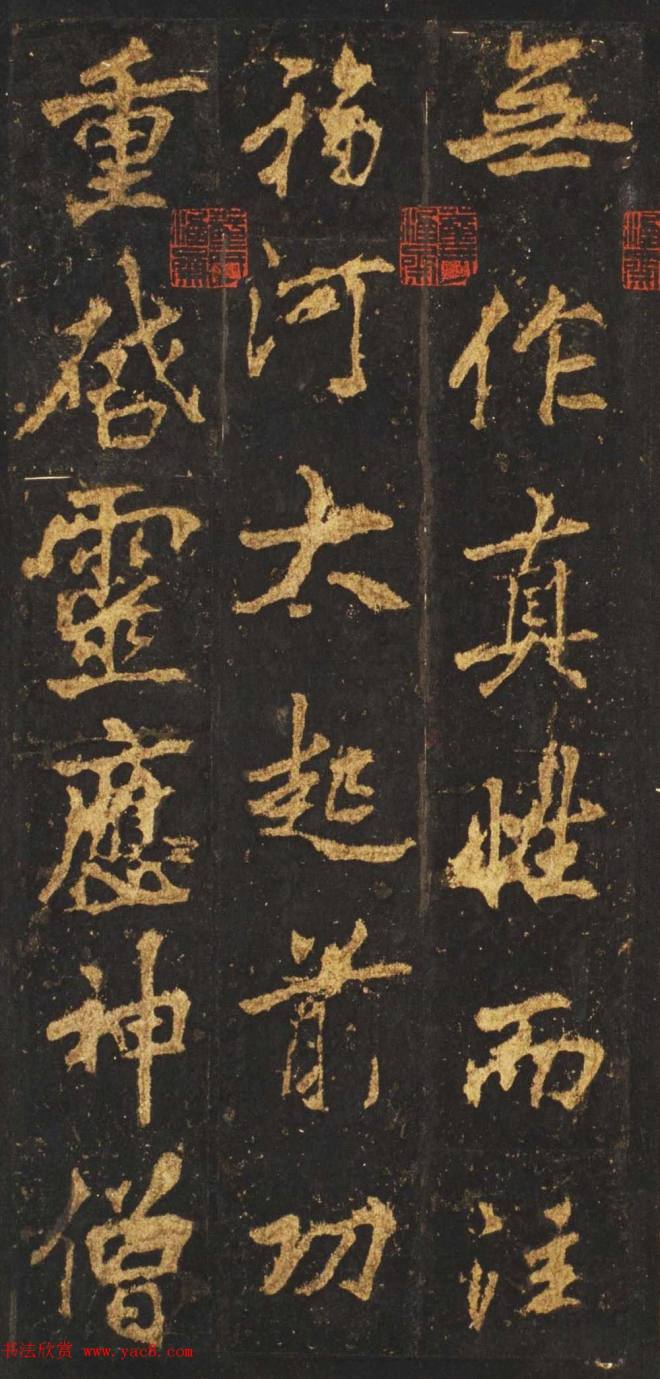 無作真性而注
福河太起前功
重啓靈應神僧
书法欣赏 www.yac8.com